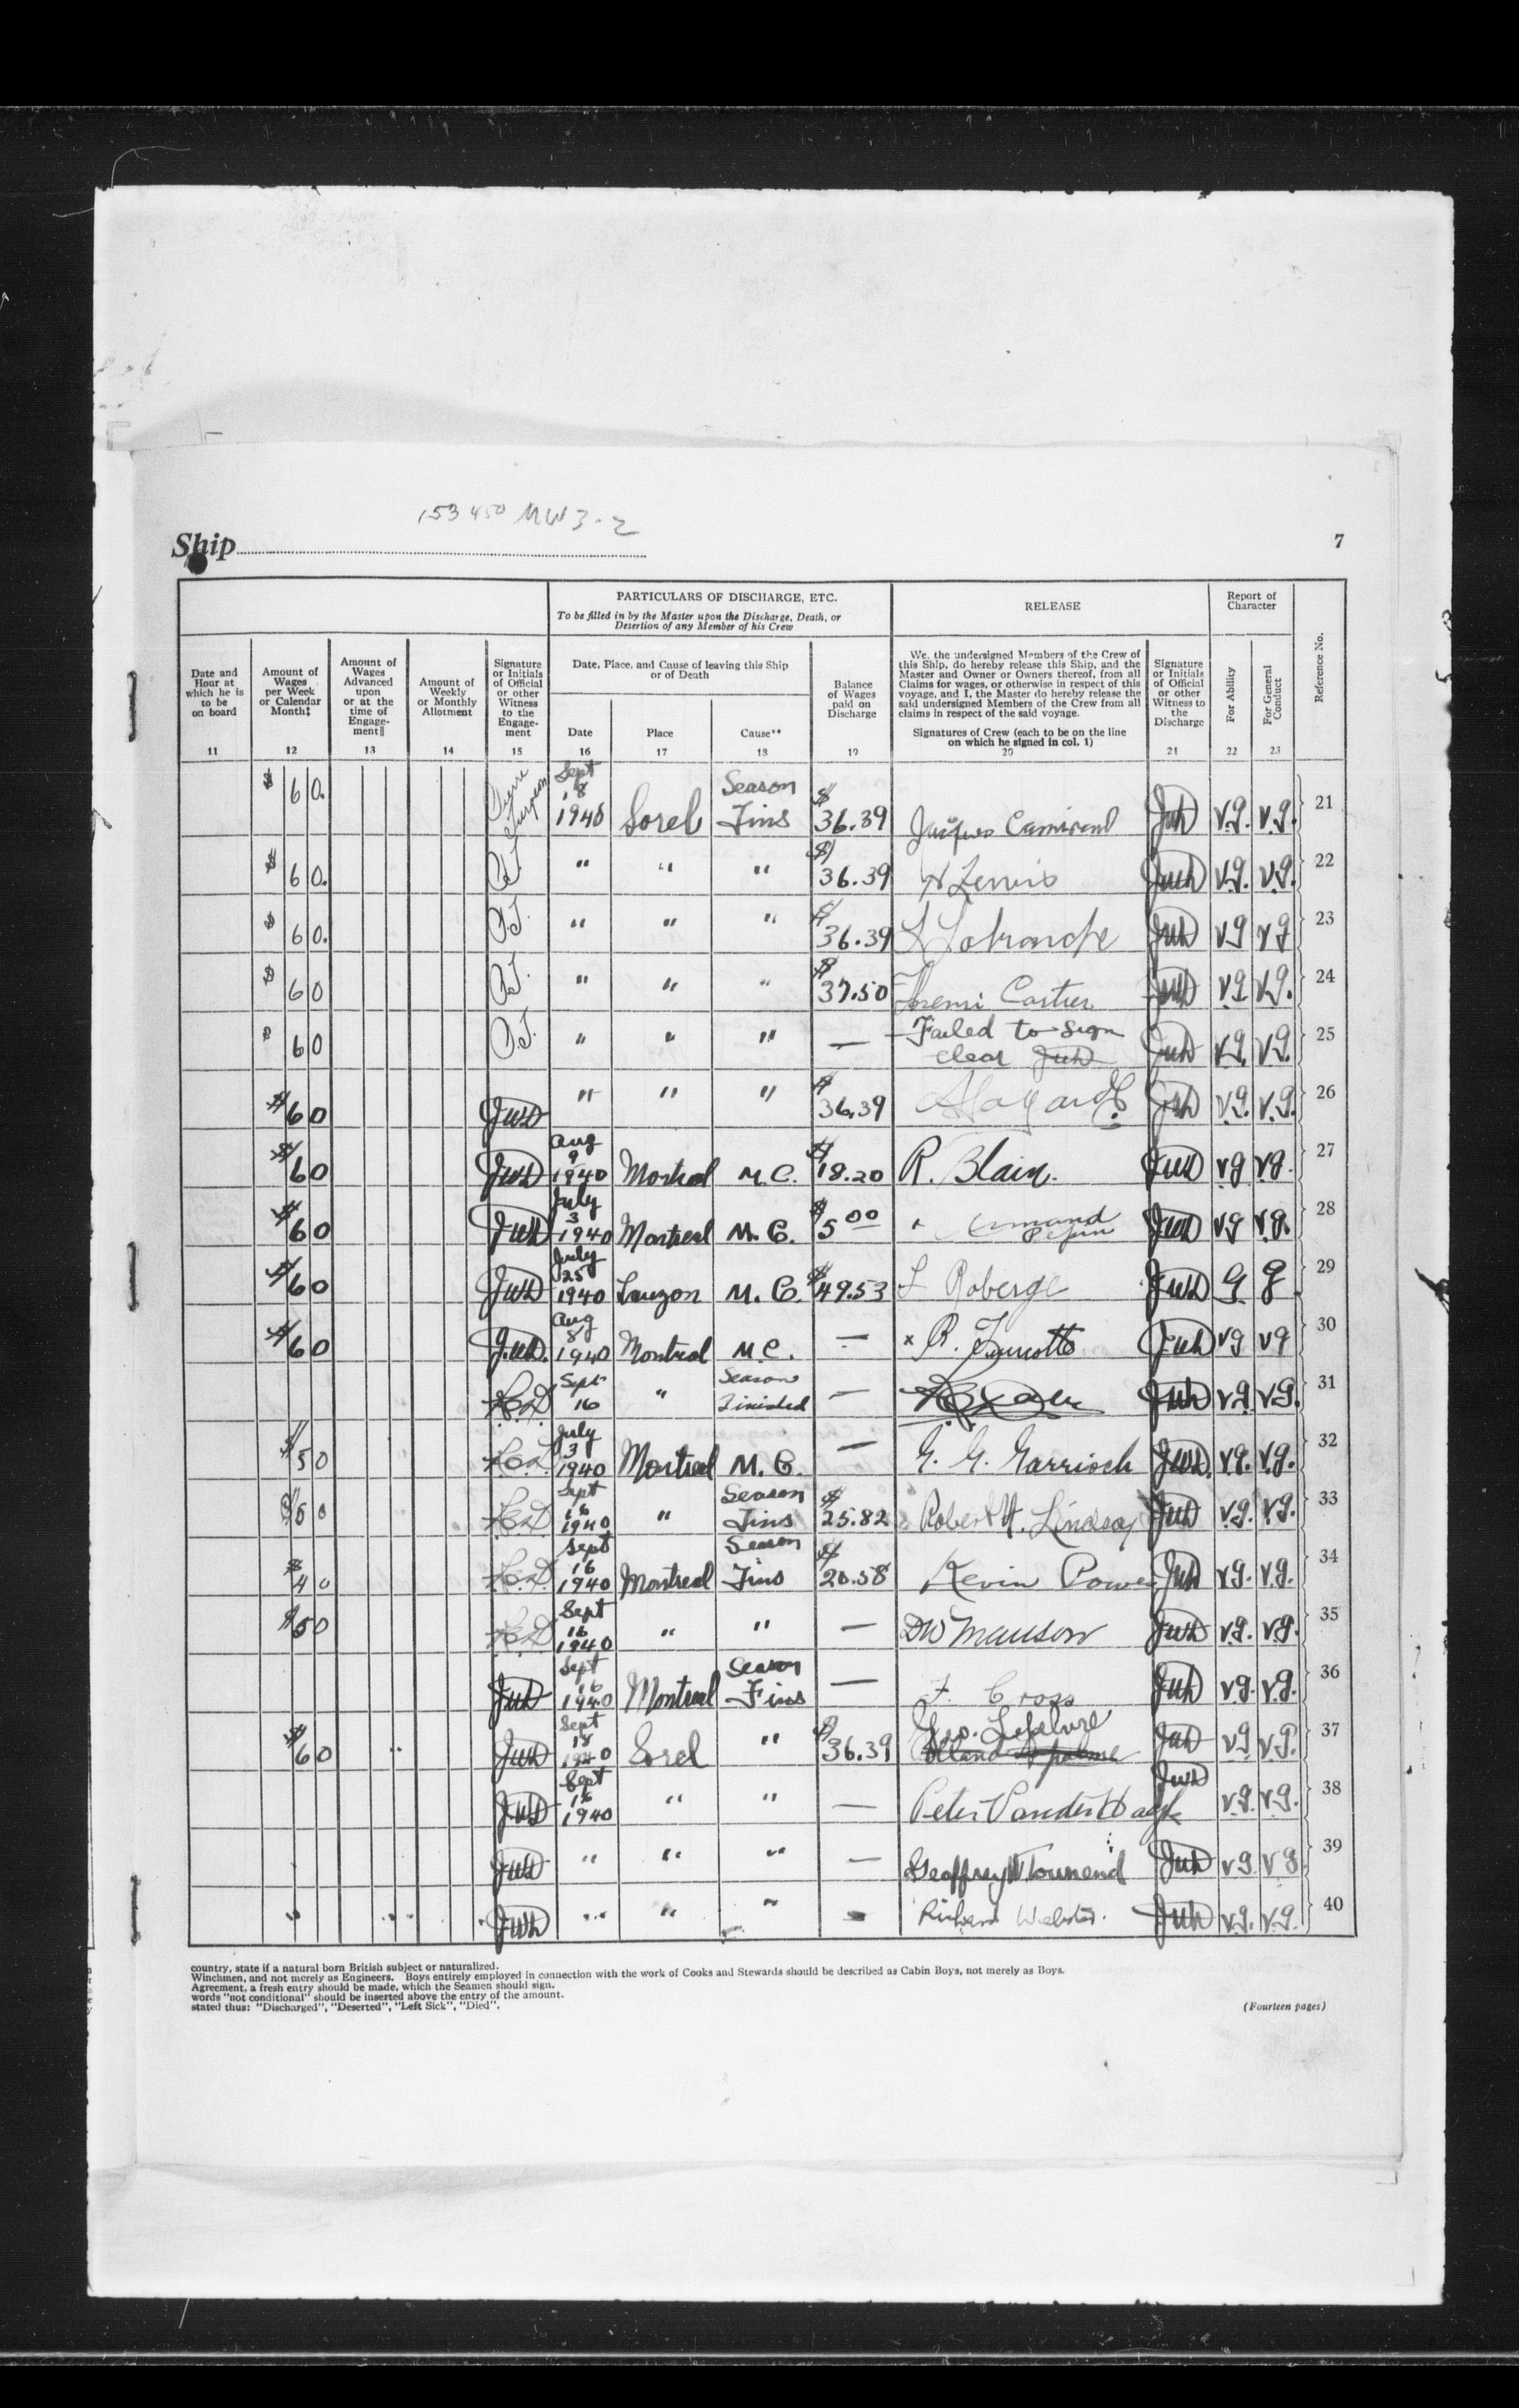 153450 MW 3-2
Ship
7
PARTICULARS OF DISCHARGE, ETC.
To be filled in by the Master upon the Discharge, Death, or
Desertion of any Member of his Crew
RELEASE
Report of
Character
Date and
Hour at
which he is
to be
on board
11
Amount of
Wages
per Week
or Calendar
Month‡
12
Amount of
Wages
Advanced
upon
or at the
time of
Engage-
ment||
13
Amount of
Weekly
or Monthly
Allotment
14
Signature
or Initials
of Official
or other
Witness
to the
Engage-
ment
15
Date, Place, and Cause of leaving this Ship
or of Death
Date
16
Place
17
Cause**
18
Balance
of Wages
paid on
Discharge
19
We, the undersigned Members of the Crew of
this Ship, do hereby release this Ship, and the
Master and Owner or Owners thereof, from all
Claims for wages, or otherwise in respect of this
voyage, and I, the Master do hereby release the
said undersigned Members of the Crew from all
claims in respect of the said voyage.
Signatures of Crew (each to be on the line
on which he signed in col. 1)
20
Signature
or Initials
of Official
or other
Witness to
the
Discharge
21
For Ability
22
For General
Conduct
23
Reference No.
$ 60. Sept 18 1940 Sorel Season Fins $36.39 Jacques JWD v.g. v.g. 21
$ 60. " " " $36.39 JWD v.g. v.g. 22
$ 60. P.T. " " " $36.39 JWD v.g v g 23
$ 60 P.T. " " " $37.50 Cartier JWD v.g v.g. 24
$ 60 P.T. " " " — Failed to sign clear JWD JWD v.g. v.g. 25
$60 JWD " " " $36.39 JWD v.g. v.g. 26
$60 JWD Aug 9 1940 Montreal M.C. $18.20 R. Blain. JWD v g v g. 27
$60 JWD July 3 1940 Montreal M.C. $5 00 Armand Pepin JWD v g v.g. 28
$60 JWD July 25 1940 Lauzon M.C. $49.53 L Roberge JWD G g 29
$60 J.W.D. Aug 8 1940 Montreal M.C. — x R. JWD v g v g 30
Sept 16 " Season Finished — JWD v.g. v.g. 31
$50 July 3 1940 Montreal M.C. — G. G. Garrioch JWD. v.g. v.g. 32
$50 Sept 16 1940 " Season Fins $25.82 Robert H. Lindsay JWD v.g. v.g. 33
$40 Sept 16 1940 Montreal Season Fins $20.58 Kevin Power JWD v.g. v.g. 34
$50 Sept 16 1940 " " — DW Manson JWD v.g. v.g. 35
JWD Sept 16 1940 Montreal Season Fins — F. Cross JWD v.g. v.g. 36
$60 JWD Sept 18 1940 Sorel " $36.39 Geo. Lefebvre JWD v.g v.g. 37
JWD Sept 16 1940 " " — Peter JWD v.g. v.g. 38
JWD " " " — Geoffrey W Townend JWD v g. v g 39
JWD " " " — Richard Webster. JWD v.g. v.g. 40
country, state if a natural born British subject or naturalized.
Winchmen, and not merely as Engineers. Boys entirely employed in connection with the work of Cooks and Stewards should be described as Cabin Boys, not merely as Boys.
Agreement, a fresh entry should be made, which the Seamen should sign.
words "not conditional" should be inserted above the entry of the amount.
stated thus: "Discharged", "Deserted", "Left Sick", "Died".
(Fourteen pages)